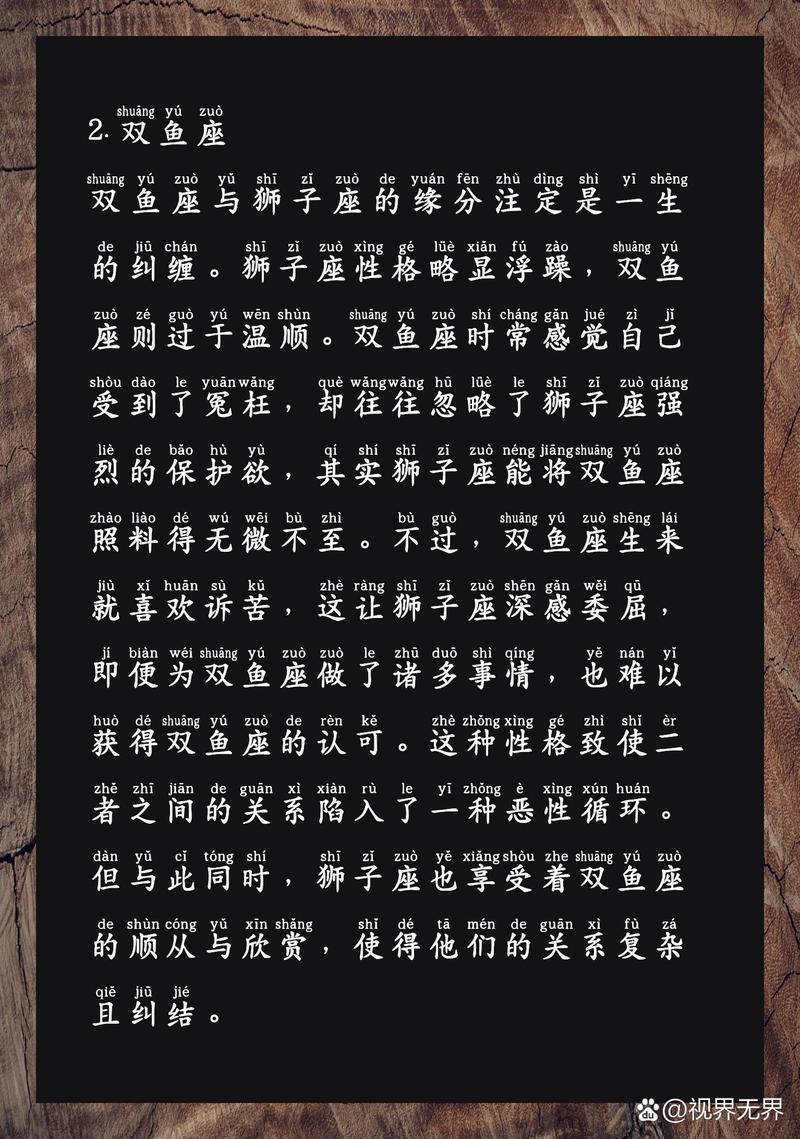 shuāng yú zuò
2. 双鱼座
shuāng yú zuò yǔ shī zǐ zuò de yuán fēn zhù dìng shì yī shēng
双鱼座与狮子座的缘分注定是一生
de jiū chán shī zǐ zuò xìng gé lüè xiǎn fú zào shuāng yú
的纠缠。狮子座性格略显浮躁，双鱼
zuò zé guò yú wēn shùn shuāng yú zuò shí cháng gǎn jué zì jǐ
座则过于温顺。双鱼座时常感觉自己
shòu dào le yuān wǎng què wǎng wǎng hū lüè le shī zǐ zuò qiáng
受到了冤枉，却往往忽略了狮子座强
liè de bǎo hù yù qí shí shī zǐ zuò néng jiāng shuāng yú zuò
烈的保护欲，其实狮子座能将双鱼座
zhào liào dé wú wēi bù zhì bù guò shuāng yú zuò shēng lái
照料得无微不至。不过，双鱼座生来
jiù xǐ huān sù kǔ zhè ràng shī zǐ zuò shēn gǎn wěi qū
就喜欢诉苦，这让狮子座深感委屈，
jí biàn wéi shuāng yú zuò zuò le zhū duō shì qíng yě nán yǐ
即便为双鱼座做了诸多事情，也难以
huò dé shuāng yú zuò de rèn kě zhè zhǒng xìng gé zhì shǐ èr
获得双鱼座的认可。这种性格致使二
zhě zhī jiān de guān xì xiàn rù le yī zhǒng è xìng xún huán
者之间的关系陷入了一种恶性循环。
dàn yǔ cǐ tóng shí shī zǐ zuò yě xiǎng shòu zhe shuāng yú zuò
但与此同时，狮子座也享受着双鱼座
de shùn cóng yǔ xīn shǎng shǐ dé tā mén de guān xì fù zá
的顺从与欣赏，使得他们的关系复杂
qiě jiū jié
且纠结。
du @视界无界